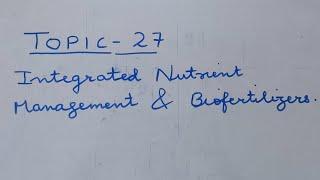 TOPIC-27
Integrated Nutrient
Management & Biofertilizers.